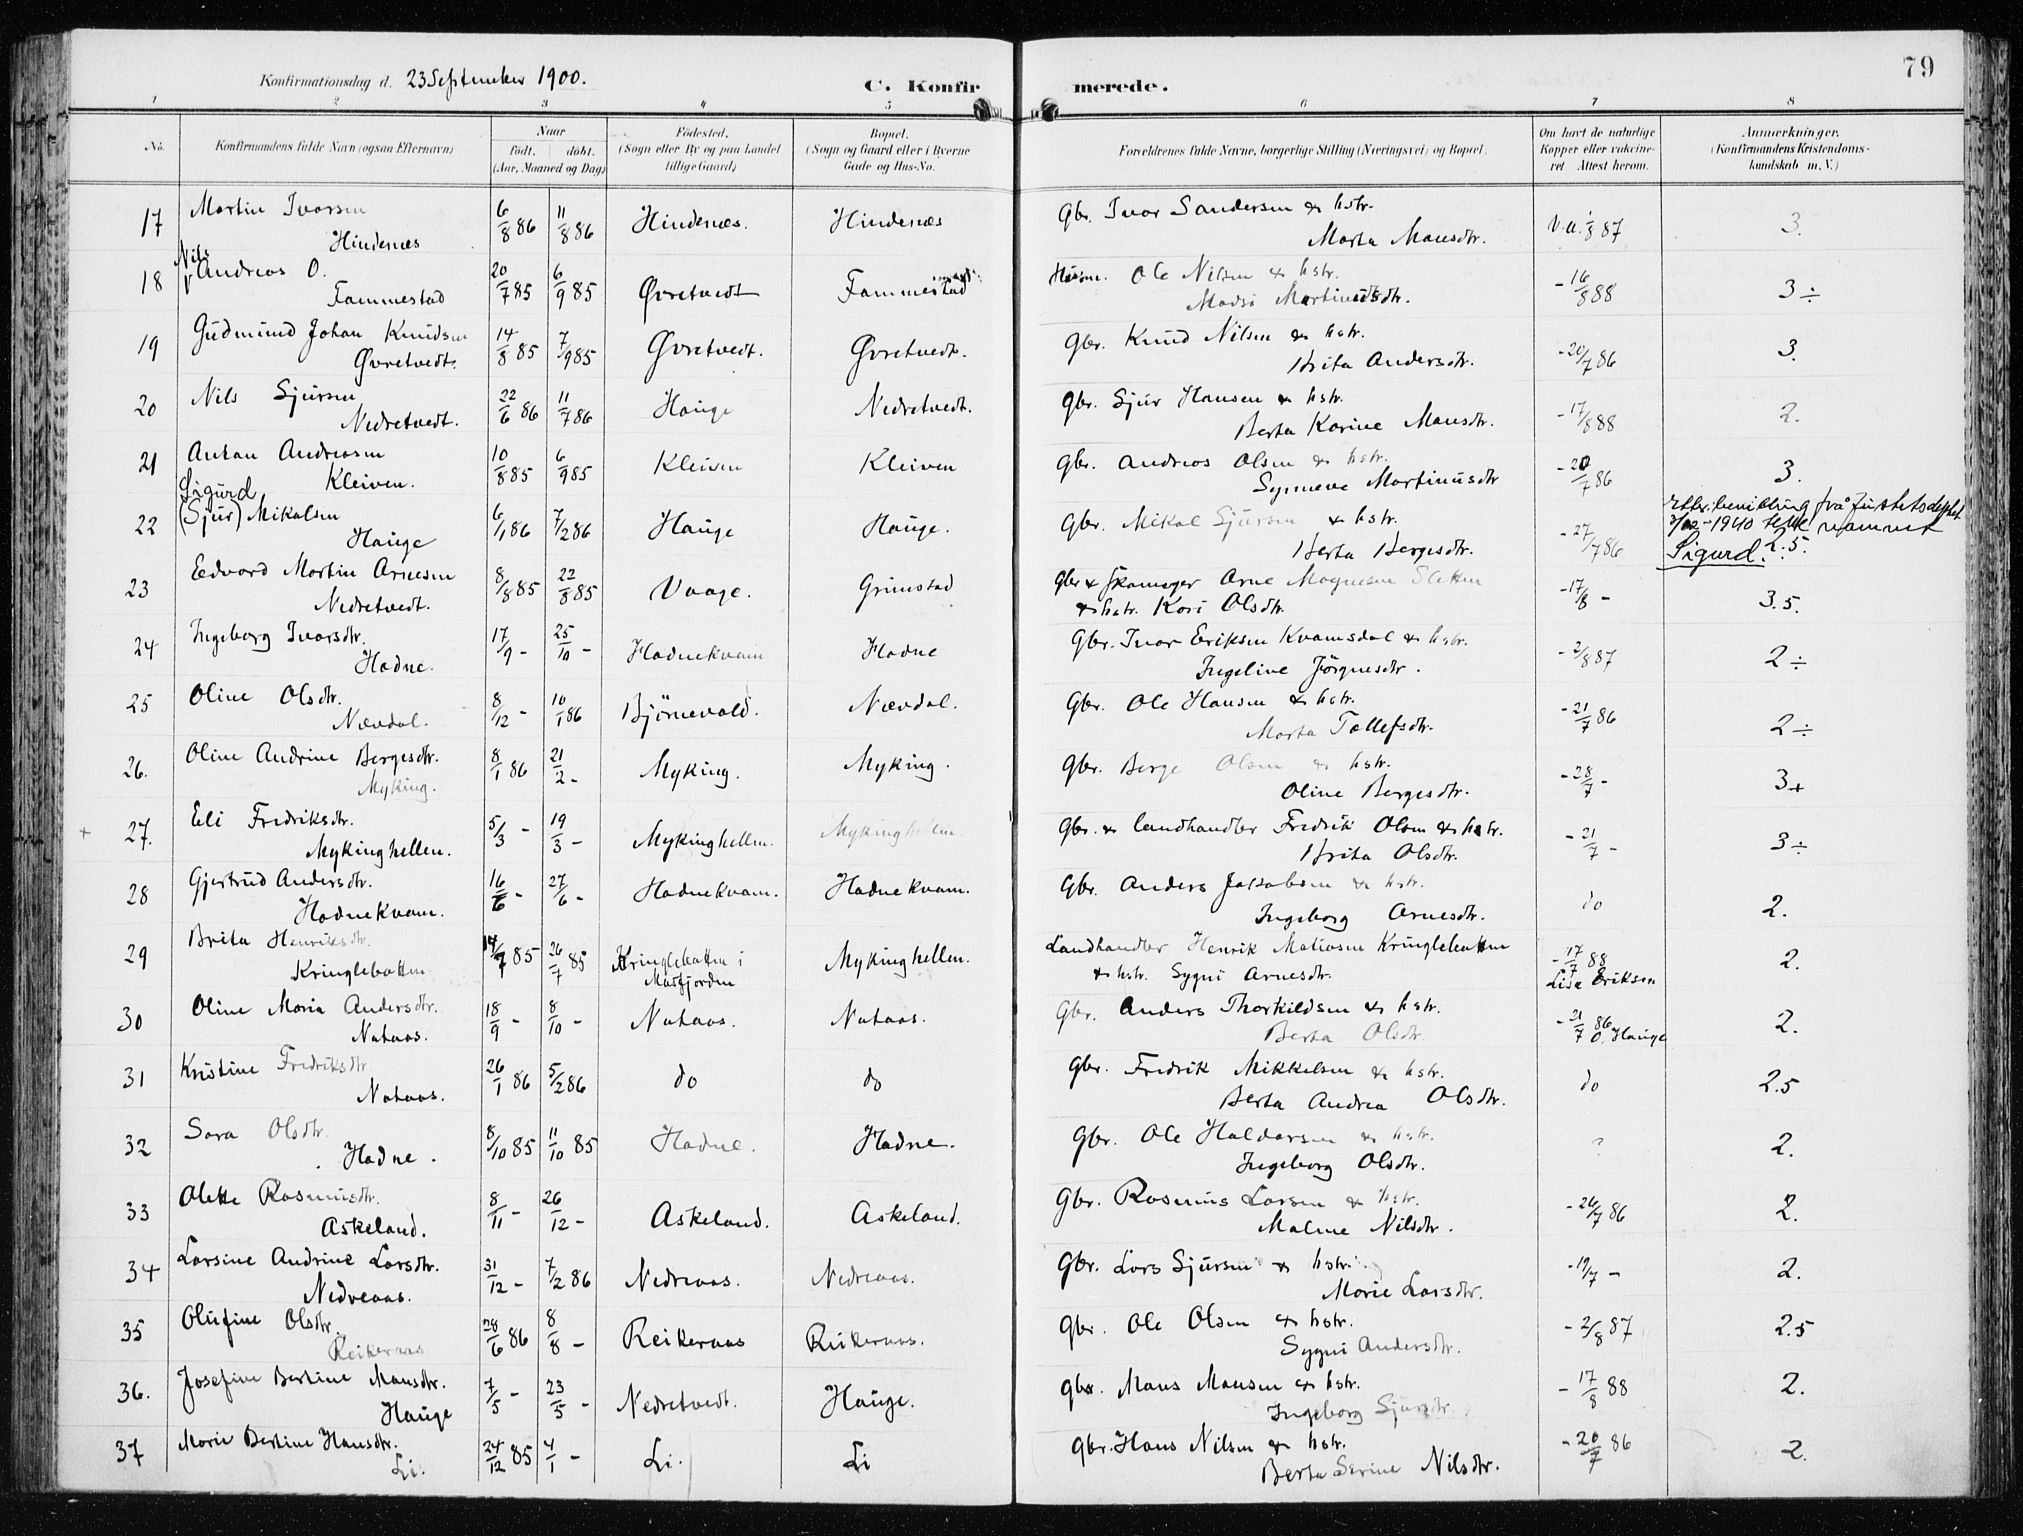 79
Konfirmationsdag d. 23 September 1900. C. Konfirmerede.
1 2 3 4 5 6 7 8
No. Konfirmandens fulde Navn (ogsaa Efternavn) Naar født, døbt. (Aar, Maaned og Dag) Fødested. (Sogn eller By og paa Landet tillige Gaard) Bopæl. (Sogn og Gaard eller i Byerne Gade og Hus-No. Forældrenes fulde Navne, borgerlige Stilling (Næringsvei) og Bopæl. Om havt de naturlige Kopper eller vaccineret Attest herom. Anmærkninger. (Konfirmandens Kristendomskundskab m. V.)
17 Martin Ivarsen Hindenæs 6/8 86 11/8 86 Hindenæs. Hindenæs Gbr. Ivar Sandersen & hstr. Marta Mansdtr. v.a. 1/8 87 3.
18 Nils Andreas O. Fammestad 20/7 85 6/9 85 Øvretvedt Fammestad Husm. Ole Nilsen & hstr. Madsi Martinusdtr. - 16/8 88 3 ÷
19 Gudmund Johan Knudsen Øvretvedt. 14/8 85 7/9 85 Øvretvedt. Øvretvedt. Gbr. Knud Nilsen & hstr. Brita Andersdtr. - 20/7 86 3.
20 Nils Sjursen Nedretvedt. 22/6 86 11/7 86 Hauge Nedretvedt. Gbr. Sjur Hansen & hstr. Berta Karine Mansdtr. - 17/8 88 2.
21 Antan Andreasen Kleiven. 10/8 85 6/9 85 Kleiven Kleiven Gbr. Andreas Olsen & hstr. Synneve Martinusdtr - 20/7 86 3.
22 Sigurd (Sjur) Mikalsen Hauge 6/1 86 7/2 86 Hauge Hauge. Gbr. Mikal Sjursen & hstr. Berta Bergesdtr. - 27/7 86 Etter bevilling frå Justitsdeptet 1940 namnet Sigurd. 2.5.
23 Edvard Martin Arnesen Nedretvedt. 8/8 85 22/8 85 Vaage. Grimstad Gbr & skomager Arne Magnesen Sletten & hstr. Kari Olsdtr. - 17/8 - 3.5.
24 Ingeborg Ivarsdtr. Hadne. 17/9 - 25/10 - Hadnekvam Hadne Gbr. Ivar Eriksen Kvamsdal & hstr. Ingeline Jørgnesdtr. - 2/8 87 2 ÷
25 Oline Olsdtr. Nævdal. 8/12 - 10/1 86 Bjørnevold. Nævdal. Gbr. Ole Hansen & hstr. Marta Tollefsdtr. - 21/7 86 2 ÷
26. Oline Andrine Bergesdtr. Myking. 8/1 86 21/2 - Myking. Myking. Gbr. Berge Olsen & hstr. Oline Bergesdtr. - 28/7 - 3 +
+ 27. Eli Fredriksdtr. Mykinghellen. 5/3 - 19/3 - Mykinghellen. Mykinghellen. Gbr. & landhandler Fredrik Olsen & hstr. Brita Olsdtr. - 21/7 - 3 ÷
28 Gjertrud Andersdtr. Hadnekvam. 16/6 - 27/6 - Hadnekvam. Hadnekvam. Gbr. Anders Jakobsen & hstr. Ingeborg Arnesdtr. do 2.
29 Brita Henriksdtr. Kringlebotten 14/7 85 26/7 85 Kringlebotten i Masfjorden Mykinghellen. Landhandler Henrik Matiasen Kringlebotten & hstr. Sygni Arnesdtr. - 17/7 88 Lisa Eriksen 2.
30 Oline Maria Andersdtr. Nataas. 18/9 - 8/10 - Nataas. Nataas. Gbr. Anders Thorkildsen & hstr. Berta Olsdtr. - 21/7 86 O. Hauge 2.
31 Kristine Fredriksdtr Nataas. 26/1 86 5/2 86 do do Gbr. Fredrik Mikkelsen & hstr. Berta Andrea Olsdtr. do 2.5
32 Sara Olsdtr. Hadne. 8/10 85 11/10 85 Hadne. Hadne. Gbr. Ole Haldorsen & hstr. Ingeborg Olsdtr. ? 2.
33 Olette Rasmusdtr. Askeland. 8/11 - 26/12 - Askeland. Askeland. Gbr. Rasmus Larsen & hstr. Malene Nilsdtr. - 26/7 86 2.
34 Larsine Andrine Larsdtr. Nedreaas. 31/12 - 7/2 86 Nedreaas. Nedreaas. Gbr. Lars Sjursen & hstr. Marie Larsdtr. - 19/7 - 2.
35 Olufine Olsdtr. Reikeraas 28/6 86 8/8 - Reikeraas Reikeraas. Gbr. Ole Olsen & hstr. Sygni Andersdtr. - 2/8 87 2.5
36. Josefine Bertine Mansdtr. Hauge 7/5 - 23/5 - Nedretvedt. Hauge. Gbr. Mans Mansen & hstr. Ingeborg Sjursdtr. - 17/8 88 2.
37 Marie Bertine Hansdtr. Li. 24/12 85 4/1 - Li. Li Gbr. Hans Nilsen & hstr. Berta Serine Nilsdtr. - 20/7 86 2.